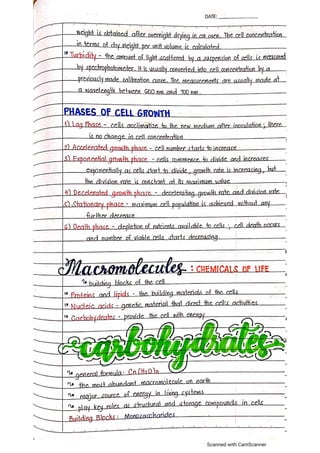 DATE:
weight is obtained after overnight drying in an oven. The cell concentration
in terms of dry weight per unit volume is calculated.
Turbidity - the amount of light scattered by a suspension of cells is measured
by spectrophotometer. It is usually converted into cell concentration by a
previously made calibration curve. The measurements are usually made at
a wavelength between 600 nm and 700 nm.
PHASES OF CELL GROWTH
1) Lag Phase - cells acclimatize to the new medium after inoculation; there
is no change in cell concentration
2) Accelerated growth phase - cell number starts to increase
3) Exponential growth phase - cells commence to divide and increases
exponentially as cells start to divide, growth rate is increasing, but
the division rate is constant at its maximum value
4) Decelerated growth phase - decelerating growth rate and division rate
5) Stationary phase - maximum cell population is achieved without any
further decrease
6) Death phase - depletion of nutrients available to cells; cell death occurs
and number of viable cells starts decreasing
Macromolecules : CHEMICALS OF LIFE
building blocks of the cell
Proteins and lipids - the building materials of the cells
Nucleic acids - genetic material that direct the cell's activities
Carbohydrates - provide the cell with energy
carbohydrates
general formula: Cn(H2O)n
the most abundant macromolecule on earth
major source of energy in living systems
play key roles as structural and storage compounds in cells
Building Blocks: Monosaccharides
Scanned with CamScanner